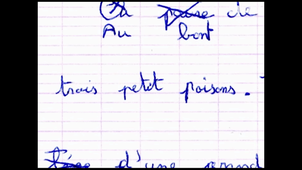 de
Au bout
trois petit poisons.
d'une grand